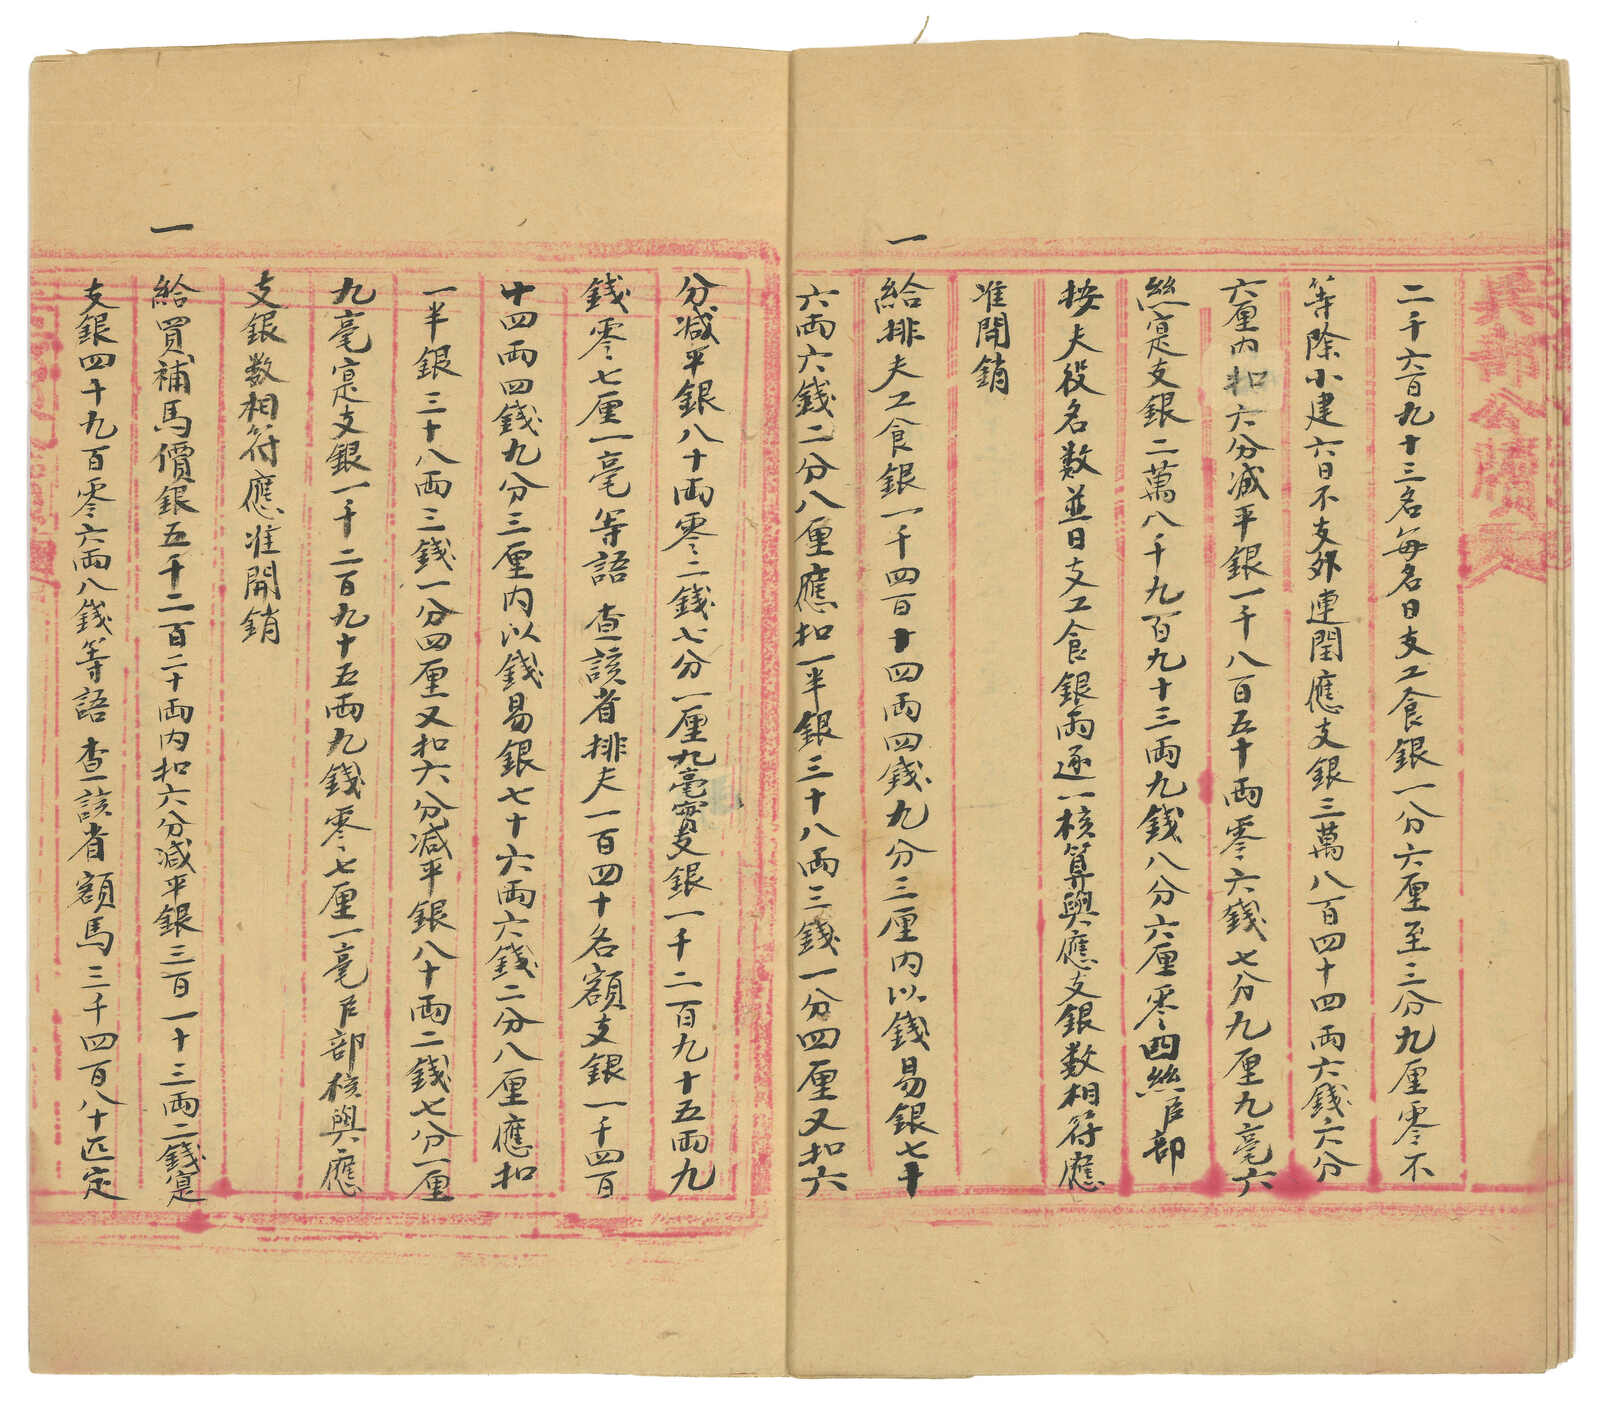 兵部公牘
二千六百九十三名每名日支工食銀一分六厘至三分九厘零不
等除小建六日不支外連閏應支銀三萬八百四十四兩六錢六分
六厘內扣六分減平銀一千八百五十兩零六錢七分九厘九毫六
絲寔支銀二萬八千九百九十三兩九錢八分六厘零四絲臣部
按夫役名數並日支工食銀兩逐一核算與應支銀數相符應
准開銷
一
給排夫工食銀一千四百十四兩四錢九分三厘內以錢易銀七十
六兩六錢二分八厘應扣一半銀三十八兩三錢一分四厘又扣六
分減平銀八十兩零二錢七分一厘九毫實支銀一千二百九十五兩九
錢零七厘一毫等語查該省排夫一百四十名額支銀一千四百
十四兩四錢九分三厘內以錢易銀七十六兩六錢二分八厘應扣
一半銀三十八兩三錢一分四厘又扣六分減平銀八十兩二錢七分一厘
九毫寔支銀一千二百九十五兩九錢零七厘一毫臣部核與應
支銀數相符應准開銷
一
給買補馬價銀五千二百二十兩內扣六分減平銀三百一十三兩二錢寔
支銀四千九百零六兩八錢等語查該省額馬三千四百八十匹定